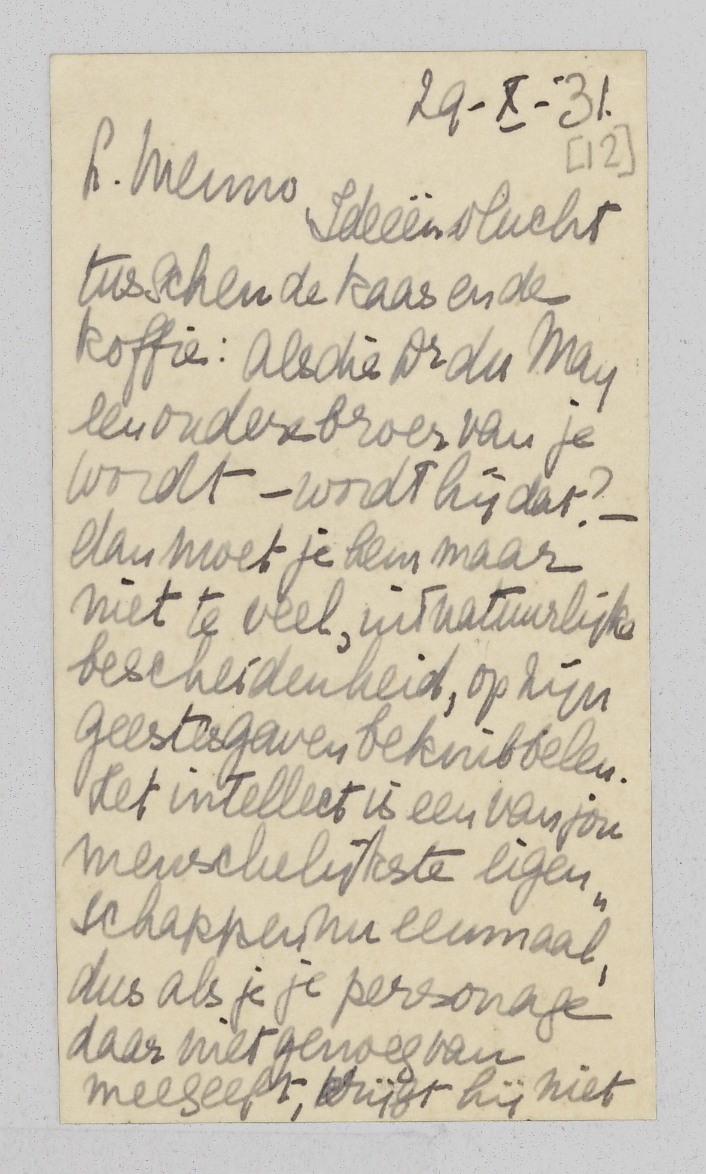 29-X-'31.
[12]
L. Menno,
Ideeënvlucht
tusschen de kaas en de
koffie: als die Dr du May
een oudere broer van je
wordt – wordt hij dat? –
dan moet je hem maar
niet te veel, uit natuurlijke
bescheidenheid, op zijn
geestesgaven beknibbelen.
Het intellect is een van jou
menschelijkste eigen„
schappen nu eenmaal,
dus als je je personage
daar niet genoeg van
meegeeft, krijgt hij niet